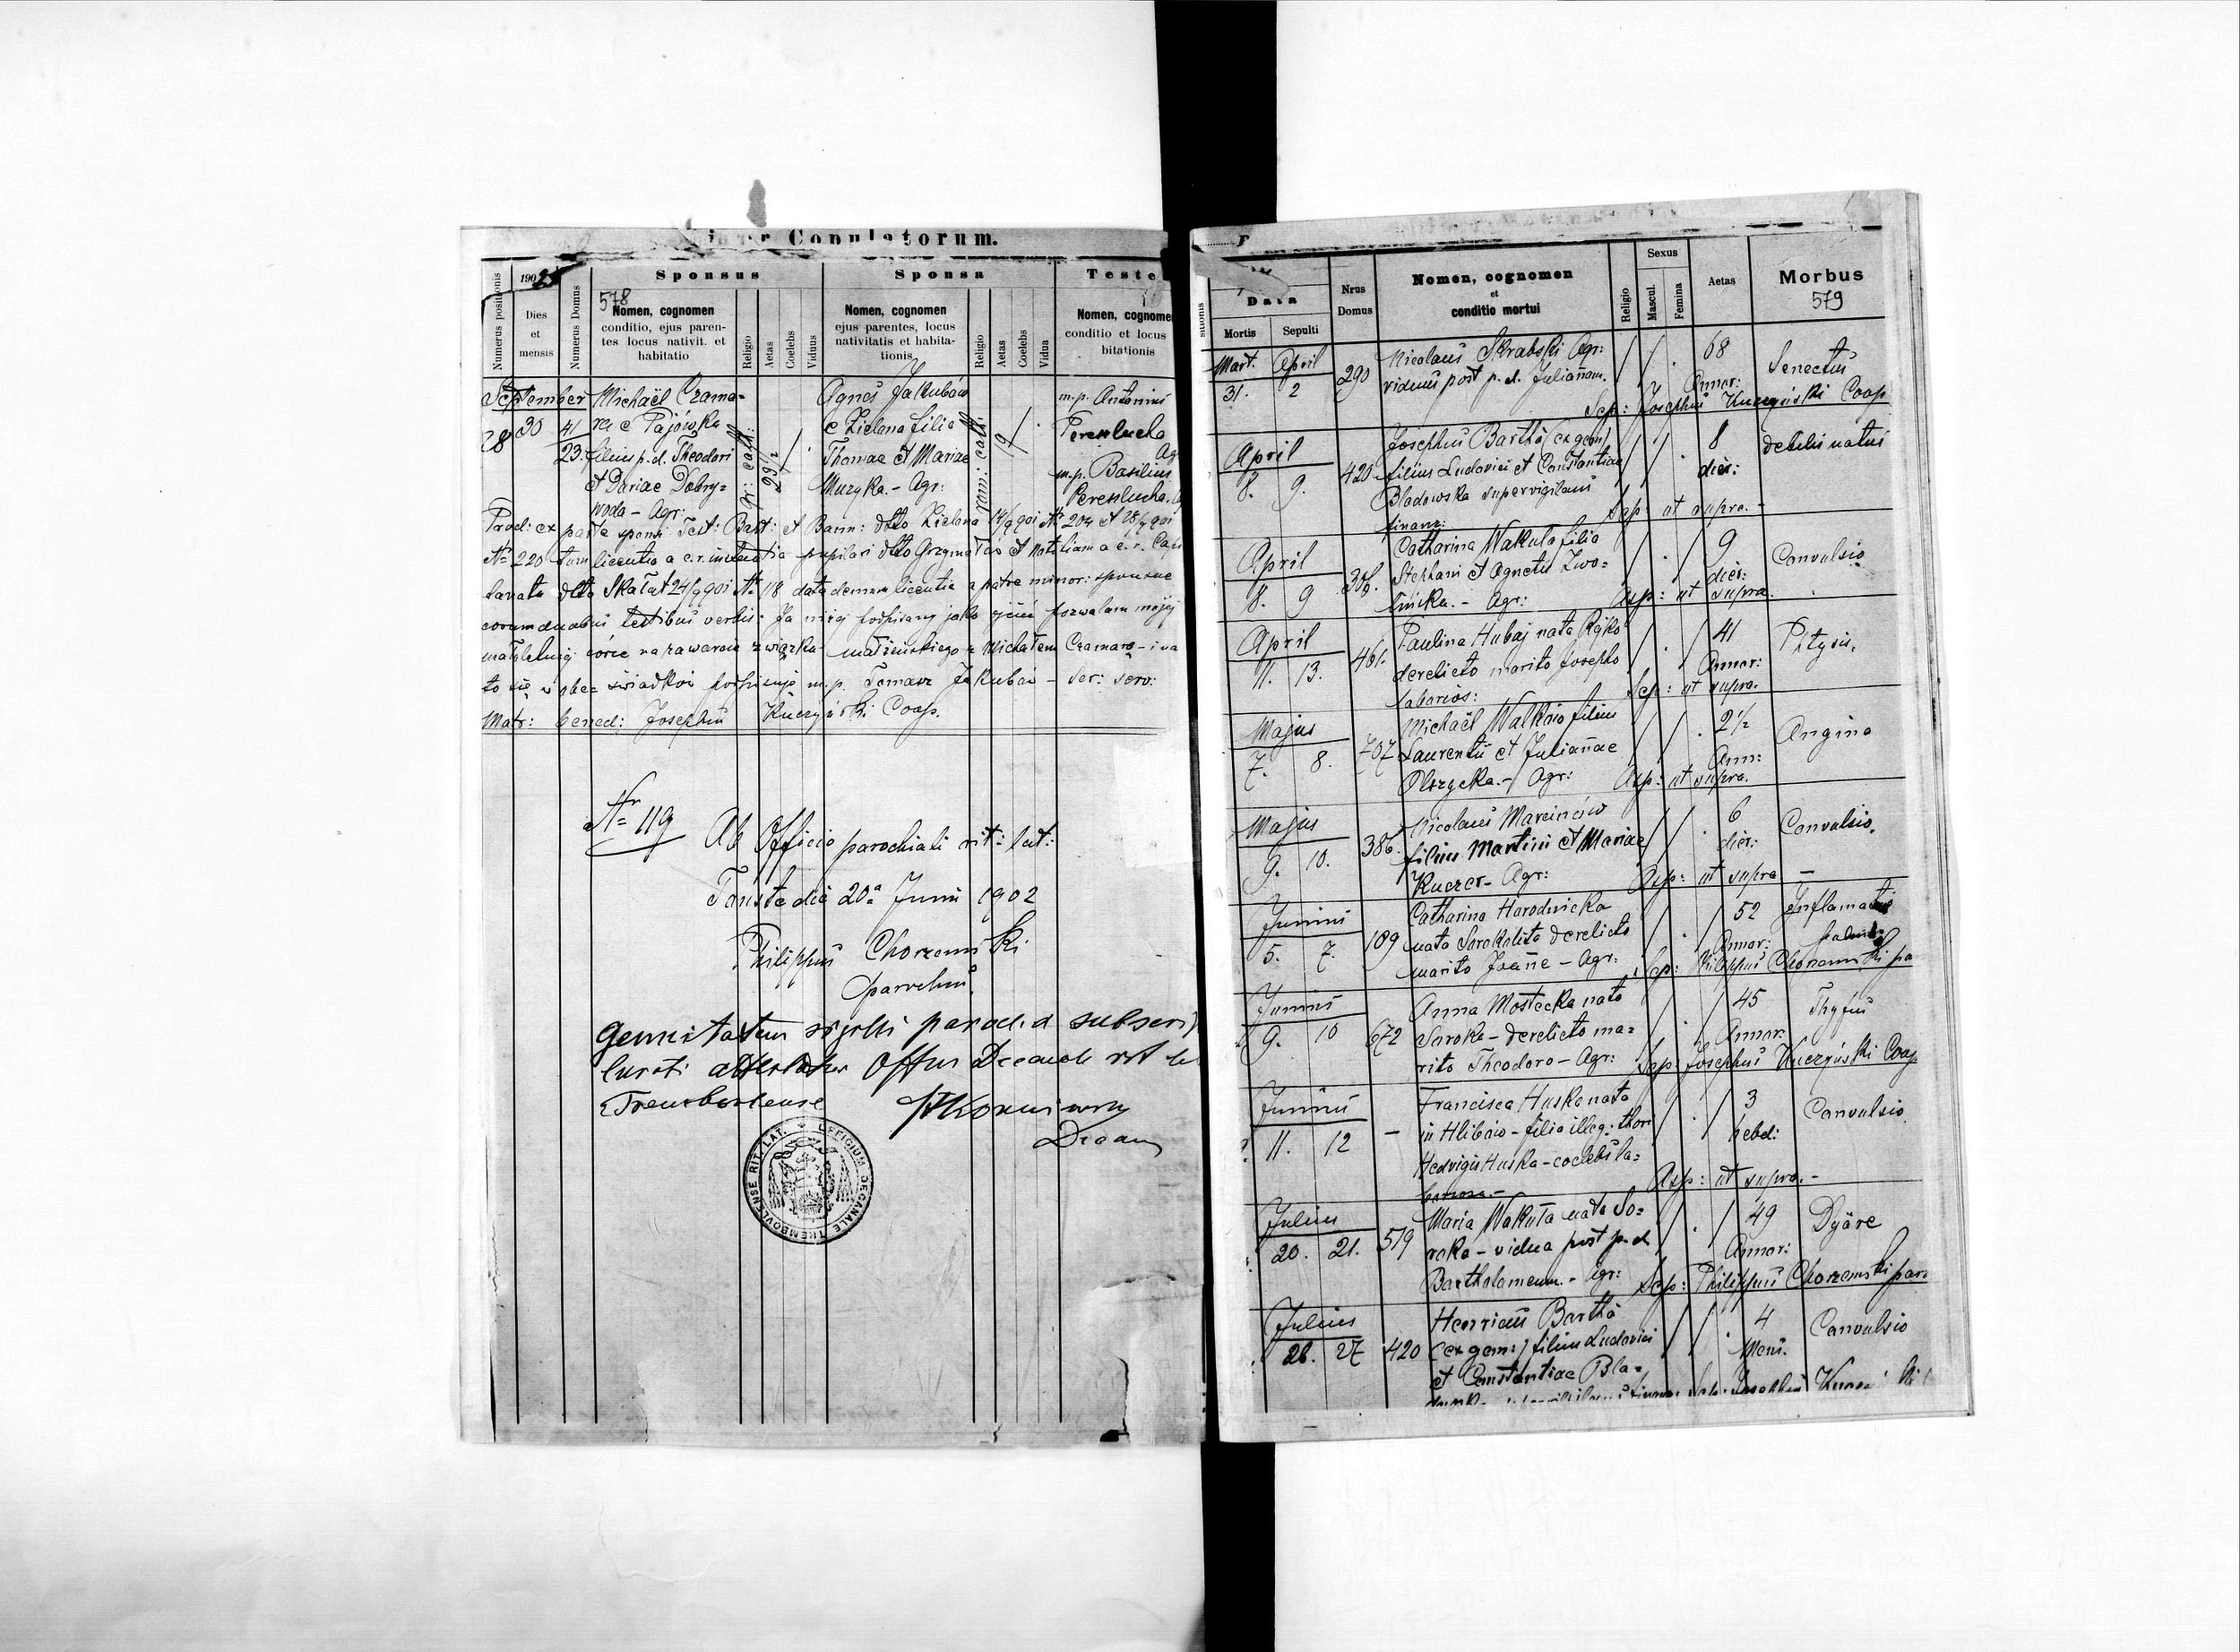 Copulatorum.
Numerus positionis
190
Dies et mensis
Numerus Domus
Sponsus
578
Nomen, cognomen
conditio, ejus paren-
tes locus nativit. et
habitatio
Religio
Aetas
Coelebs
Viduus
Sponsa
Nomen, cognomen
ejus parentes, locus
nativitatis et habita-
tionis
Religio
Aetas
Coelebs
Vidua
Teste
Nomen, cognome
conditio et locus
bitationis
September
28
30
41/23.
Michaël Czama-
ra e Pajówka
filius p.d. Theodori
et Dariae Dobry=
woda - Agr:
gr: cath:
29½
Agnes Jakubów
e Zielona filia
Thomae et Mariae
Muzyka. - Agr:
rom: cath:
19
m.p. Antonius
Pereslucha
Ag
m.p. Basilius
Pereslucha.
Prod: ex parte sponsi Test: Bapt: et Bann: dtto Zielona 14/9 901 Nr 204 et 28/9 901
Nr 220 tum licentia a c.r. pupilari dtto Grzymałów et
dtto Skałat 24/9 901 Nr 118 data demum licentia a patre minor: sponsae
coram duabus testibus verbis: Ja niżej podpisany jako ojciec pozwalam mojej
małoletniej córce na zawarcie związku małżeńskiego z Michałem Czamarą - i na
to się w obec świadków podpisuję m.p. Tomasz Jakubów - Ser: serv:
Matr: bened: Josephus Kuczyński Coop.
Nr 119
Ab Officio parochiali rit: lat:
Touste die 20a Junii 1902
Philippus Chorzemski
parochus
Genuitatem sigilli paroch. et subscri
Curati attestatur Offium Decanale rit l
Trembovlense
Decan
OFFICIUM DECANALE TREMBOVLENSE RIT. LAT.
Data
Mortis
Sepulti
Nrus
Domus
Nomen, cognomen
et
conditio mortui
Religio
Sexus
Mascul.
Femina
Aetas
Morbus
579
Mart. April
31. 2
290
Nicolaus Skrabski Agr:
viduus post p.d. Juliannam.
68
Annor:
Senectus
Sep: Josephus Kuczyński Coop
April
8. 9.
420
Josephus Bartha (ex gem)
filius Ludovici et Constantiae
Bladowska supervigilans
finanz:
8
dier:
debilis natus
Sep: ut supra. -
April
8. 9
Catharina Wakula filia
Stephani et Agnetis Zwo=
lińska. - Agr:
9
dier:
Convulsio
Asp: ut supra.
April
11. 13.
461.
Paulina Hubaj nata Rajko
derelicto marito Josepho
laborios:
41
Annor:
Phtysis.
Sep: ut supra.
Majus
7. 8.
707
Michaël Walków filius
Laurentii et Juliannae
Olszycka. - Agr:
2½
Ann:
Angina
Asp: ut supra.
Majus
9. 10.
386.
Nicolaus Marcinców
filius Martini et Mariae
Kuczer - Agr:
6
dier:
Convulsio.
Asp: ut supra -
Junius
5. 7.
189
Catharina Horodnicka
nata Sorokolita derelicto
marito Joanne - Agr:
52
Annor:
Inflamatio
Sep: Philippus Chorzemski pa
Junius
9. 10
672
Anna Mostecka nata
Soroka - derelicto ma=
rito Theodoro - Agr:
45
Annor:
Thyfus
Sep: Josephus Kuczyński Coop.
Junius
11. 12
-
Francisca Huska nata
in Hlibów - filia illeg: thori
Hedvigis Huska - coelebs la=
boriosa. -
3
hebd:
Convulsio
Asp: ut supra. -
Julius
20. 21.
519
Maria Wakuła nata So=
roka - vidua post p.d.
Bartholomeum. - Agr:
49
Annor:
Dyäre
Sep: Philippus Chorzemski par
Julius
26. 27
420
Henricus Bartha
(ex gem:) filius Ludovici
et Constantiae Bla=
4
Mens.
Convulsio
Sep: Josephus